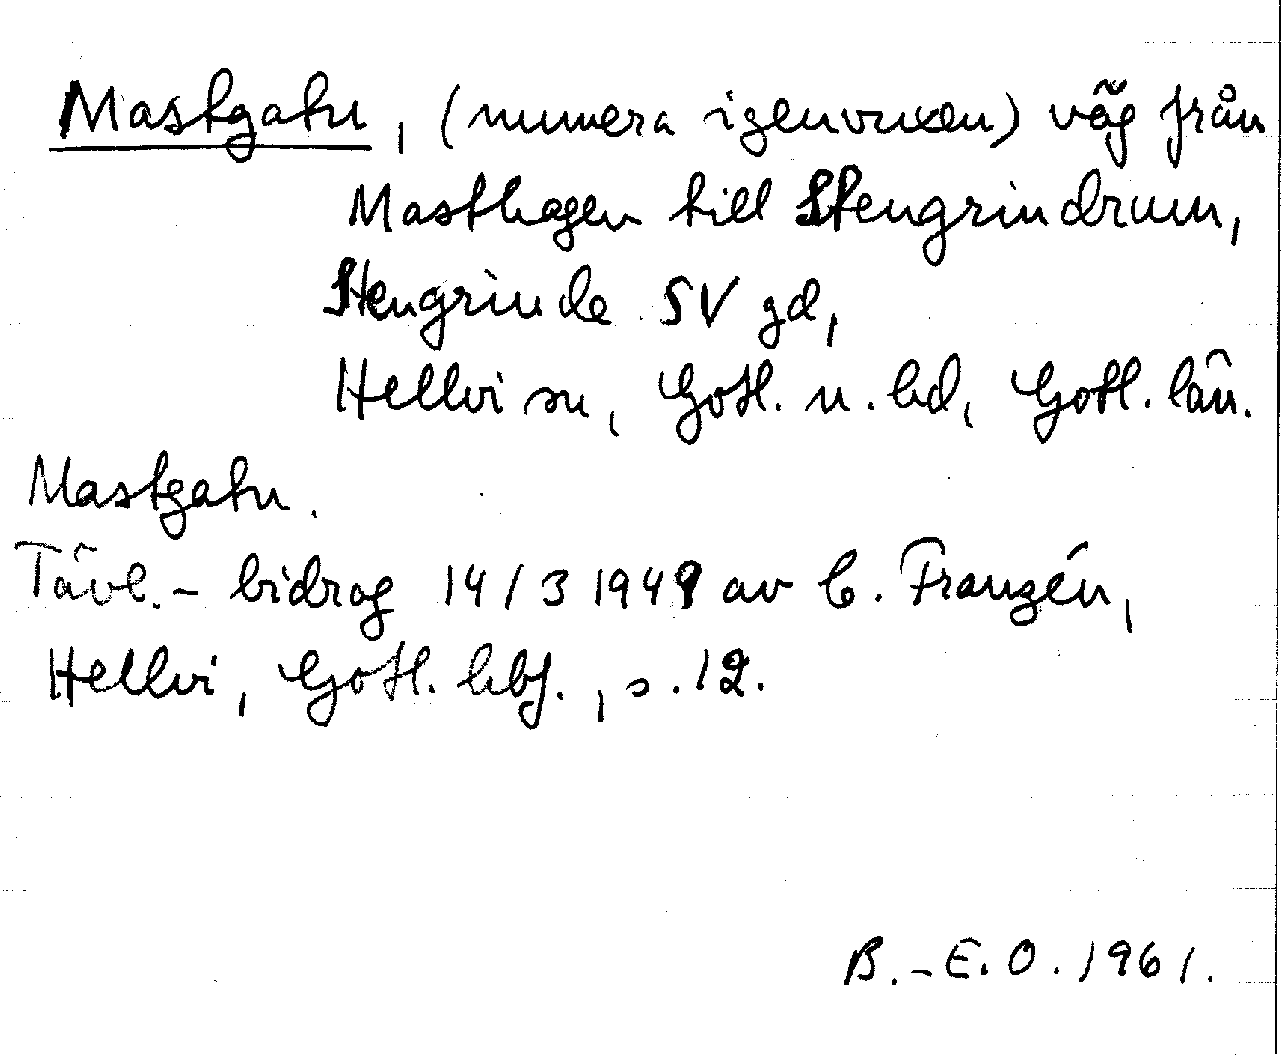 Mastgatu, (numera igenvuxen) väg från
Masthagen till Stengrindrum,
Stengrinde SV gd,
Hellvi sn, Gotl. n. hd, Gotl. län.
Mastgatu.
Tävl.- bidrag 14/3 1949 av C. Franzén,
Hellvi, Gotl. hbf., s. 12.
B.-E.O. 1961.